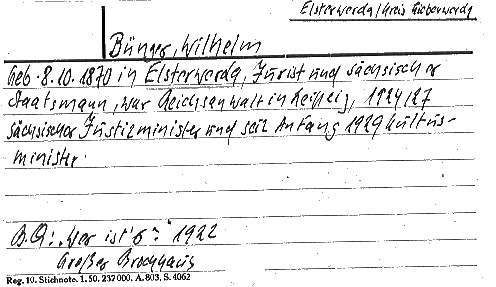 Elsterwerda/Kreis Liebenwerda
Bünger, Wilhelm
Geb. 8.10.1870 in Elsterwerda, Jurist und sächsischer
Staatsmann, war Reichsanwalt in Leipzig, 1924/27
sächsischer Justizminister und seit Anfang 1929 Kultus-
minister.
B.Q.: "Wer ist's?" 1922
Großer Brockhaus
Reg. 10. Stichnote. 1. 50. 237000. A. 803, S. 4062